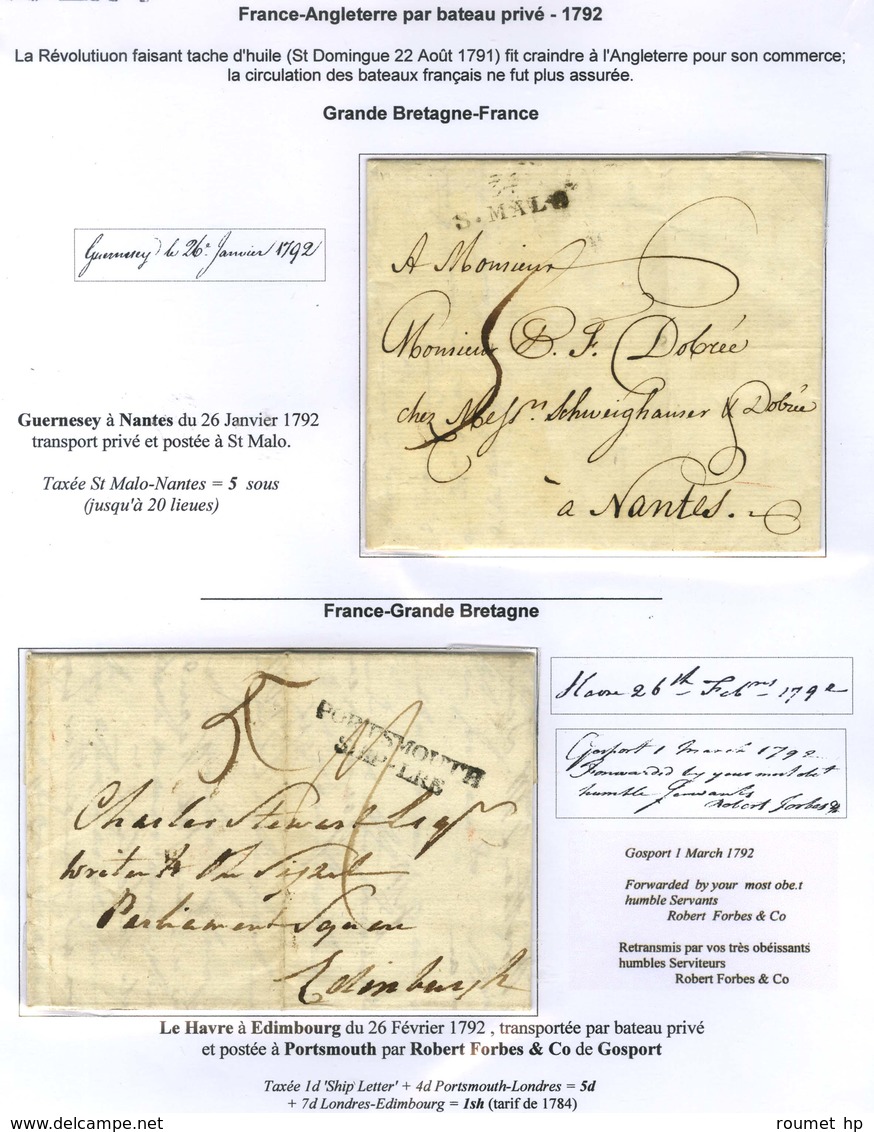 France-Angleterre par bateau privé - 1792
La Révolutiuon faisant tache d'huile (St Domingue 22 Août 1791) fit craindre à l'Angleterre pour son commerce;
la circulation des bateaux français ne fut plus assurée.
Grande Bretagne-France
S. MALO
Guernesey le 26e Janvier 1792
A Monsieur
Monsieur P. F. Dobrée
chez Messrs Schweighauser & Dobrée
à Nantes.
5
Guernesey à Nantes du 26 Janvier 1792
transport privé et postée à St Malo.
Taxée St Malo-Nantes = 5 sous
(jusqu'à 20 lieues)
France-Grande Bretagne
PORTSMOUTH
SHIP-LRE
Charles Stewart Esqr
Writer to the Signet
Parliament Square
Edinburgh
Havre 26th Febry 1792
Gosport 1 March 1792
Forwarded by your most obt
humble Servants
Robert Forbes &
Gosport 1 March 1792
Forwarded by your most obe.t
humble Servants
Robert Forbes & Co
Retransmis par vos très obéissants
humbles Serviteurs
Robert Forbes & Co
Le Havre à Edimbourg du 26 Février 1792 , transportée par bateau privé
et postée à Portsmouth par Robert Forbes & Co de Gosport
Taxée 1d 'Ship Letter' + 4d Portsmouth-Londres = 5d
+ 7d Londres-Edimbourg = 1sh (tarif de 1784)
www.delcampe.net
roumet hp